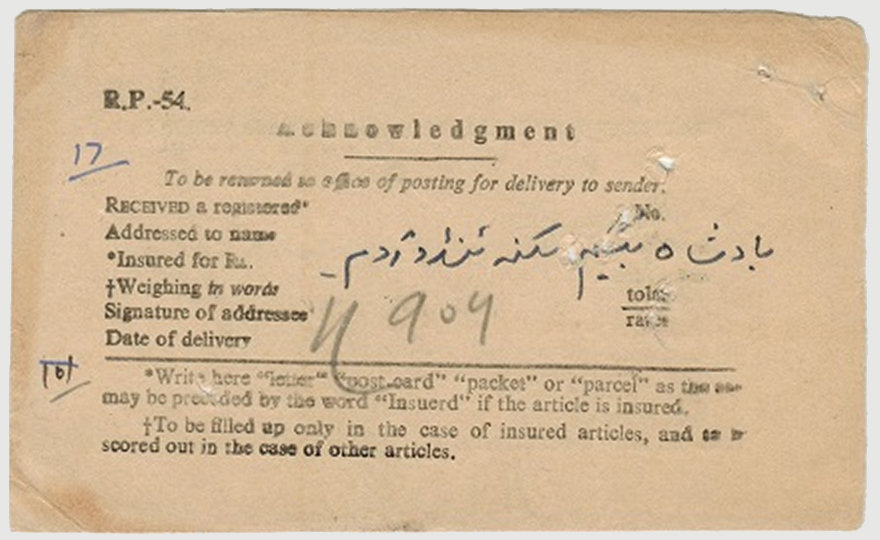 R.P.-54.
Acknowledgment
17
To be returned to office of posting for delivery to sender.
RECEIVED a registered* No.
Addressed to name
بادشاه بیگم سکنہ
*Insured for Rs.
†Weighing in words tolas
Signature of addressee
904
Date of delivery
*Write here "letter" "post card" "packet" or "parcel" as the
may be preceded by the word "Insuerd" if the article is insured.
†To be filled up only in the case of insured articles, and to be
scored out in the case of other articles.